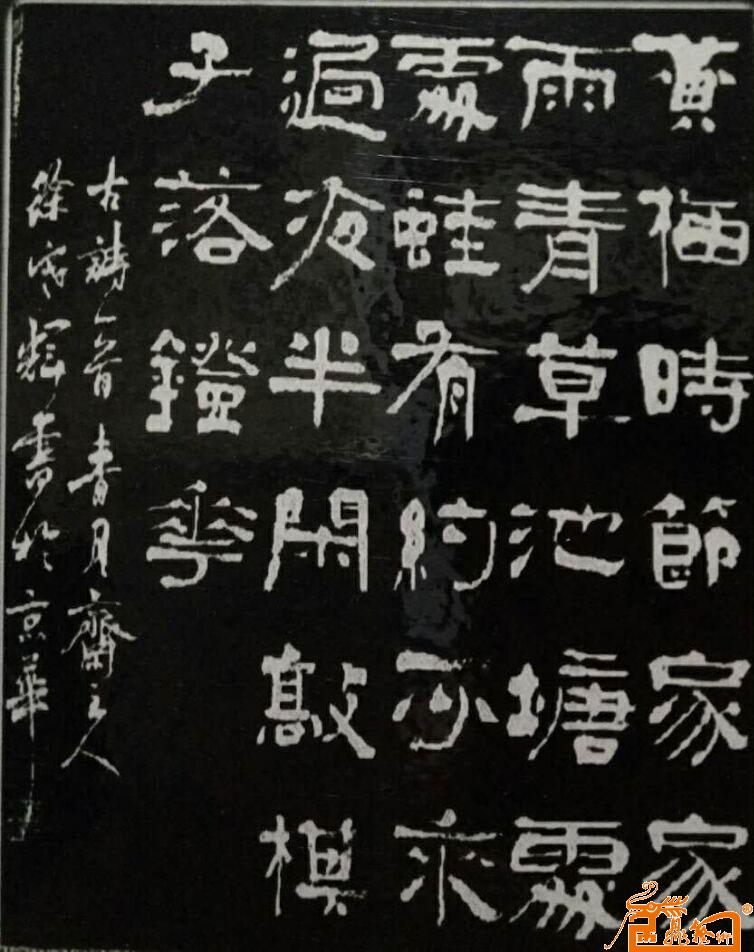 黄梅時節家家
雨青草池塘處
處蛙有約不來
過夜半閑敲棋
子落鐙華
古詩一首春月齋主人
徐輝書於京華